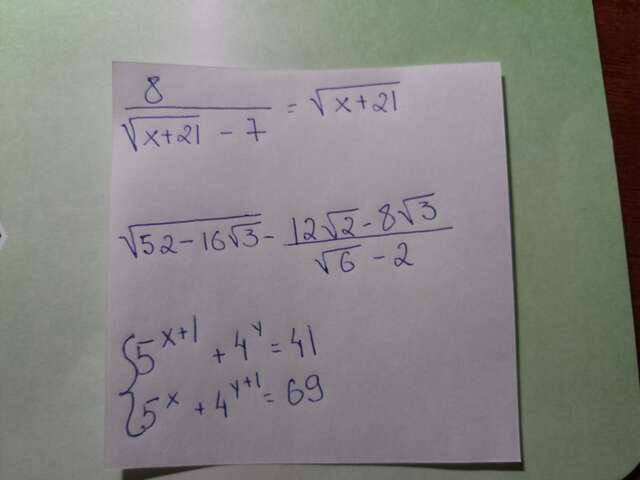 8/(√(x+21) - 7) = √(x+21)
√(52-16√3) - (12√2-8√3)/(√6-2)
{5^(x+1) + 4^y = 41
{5^x + 4^(y+1) = 69